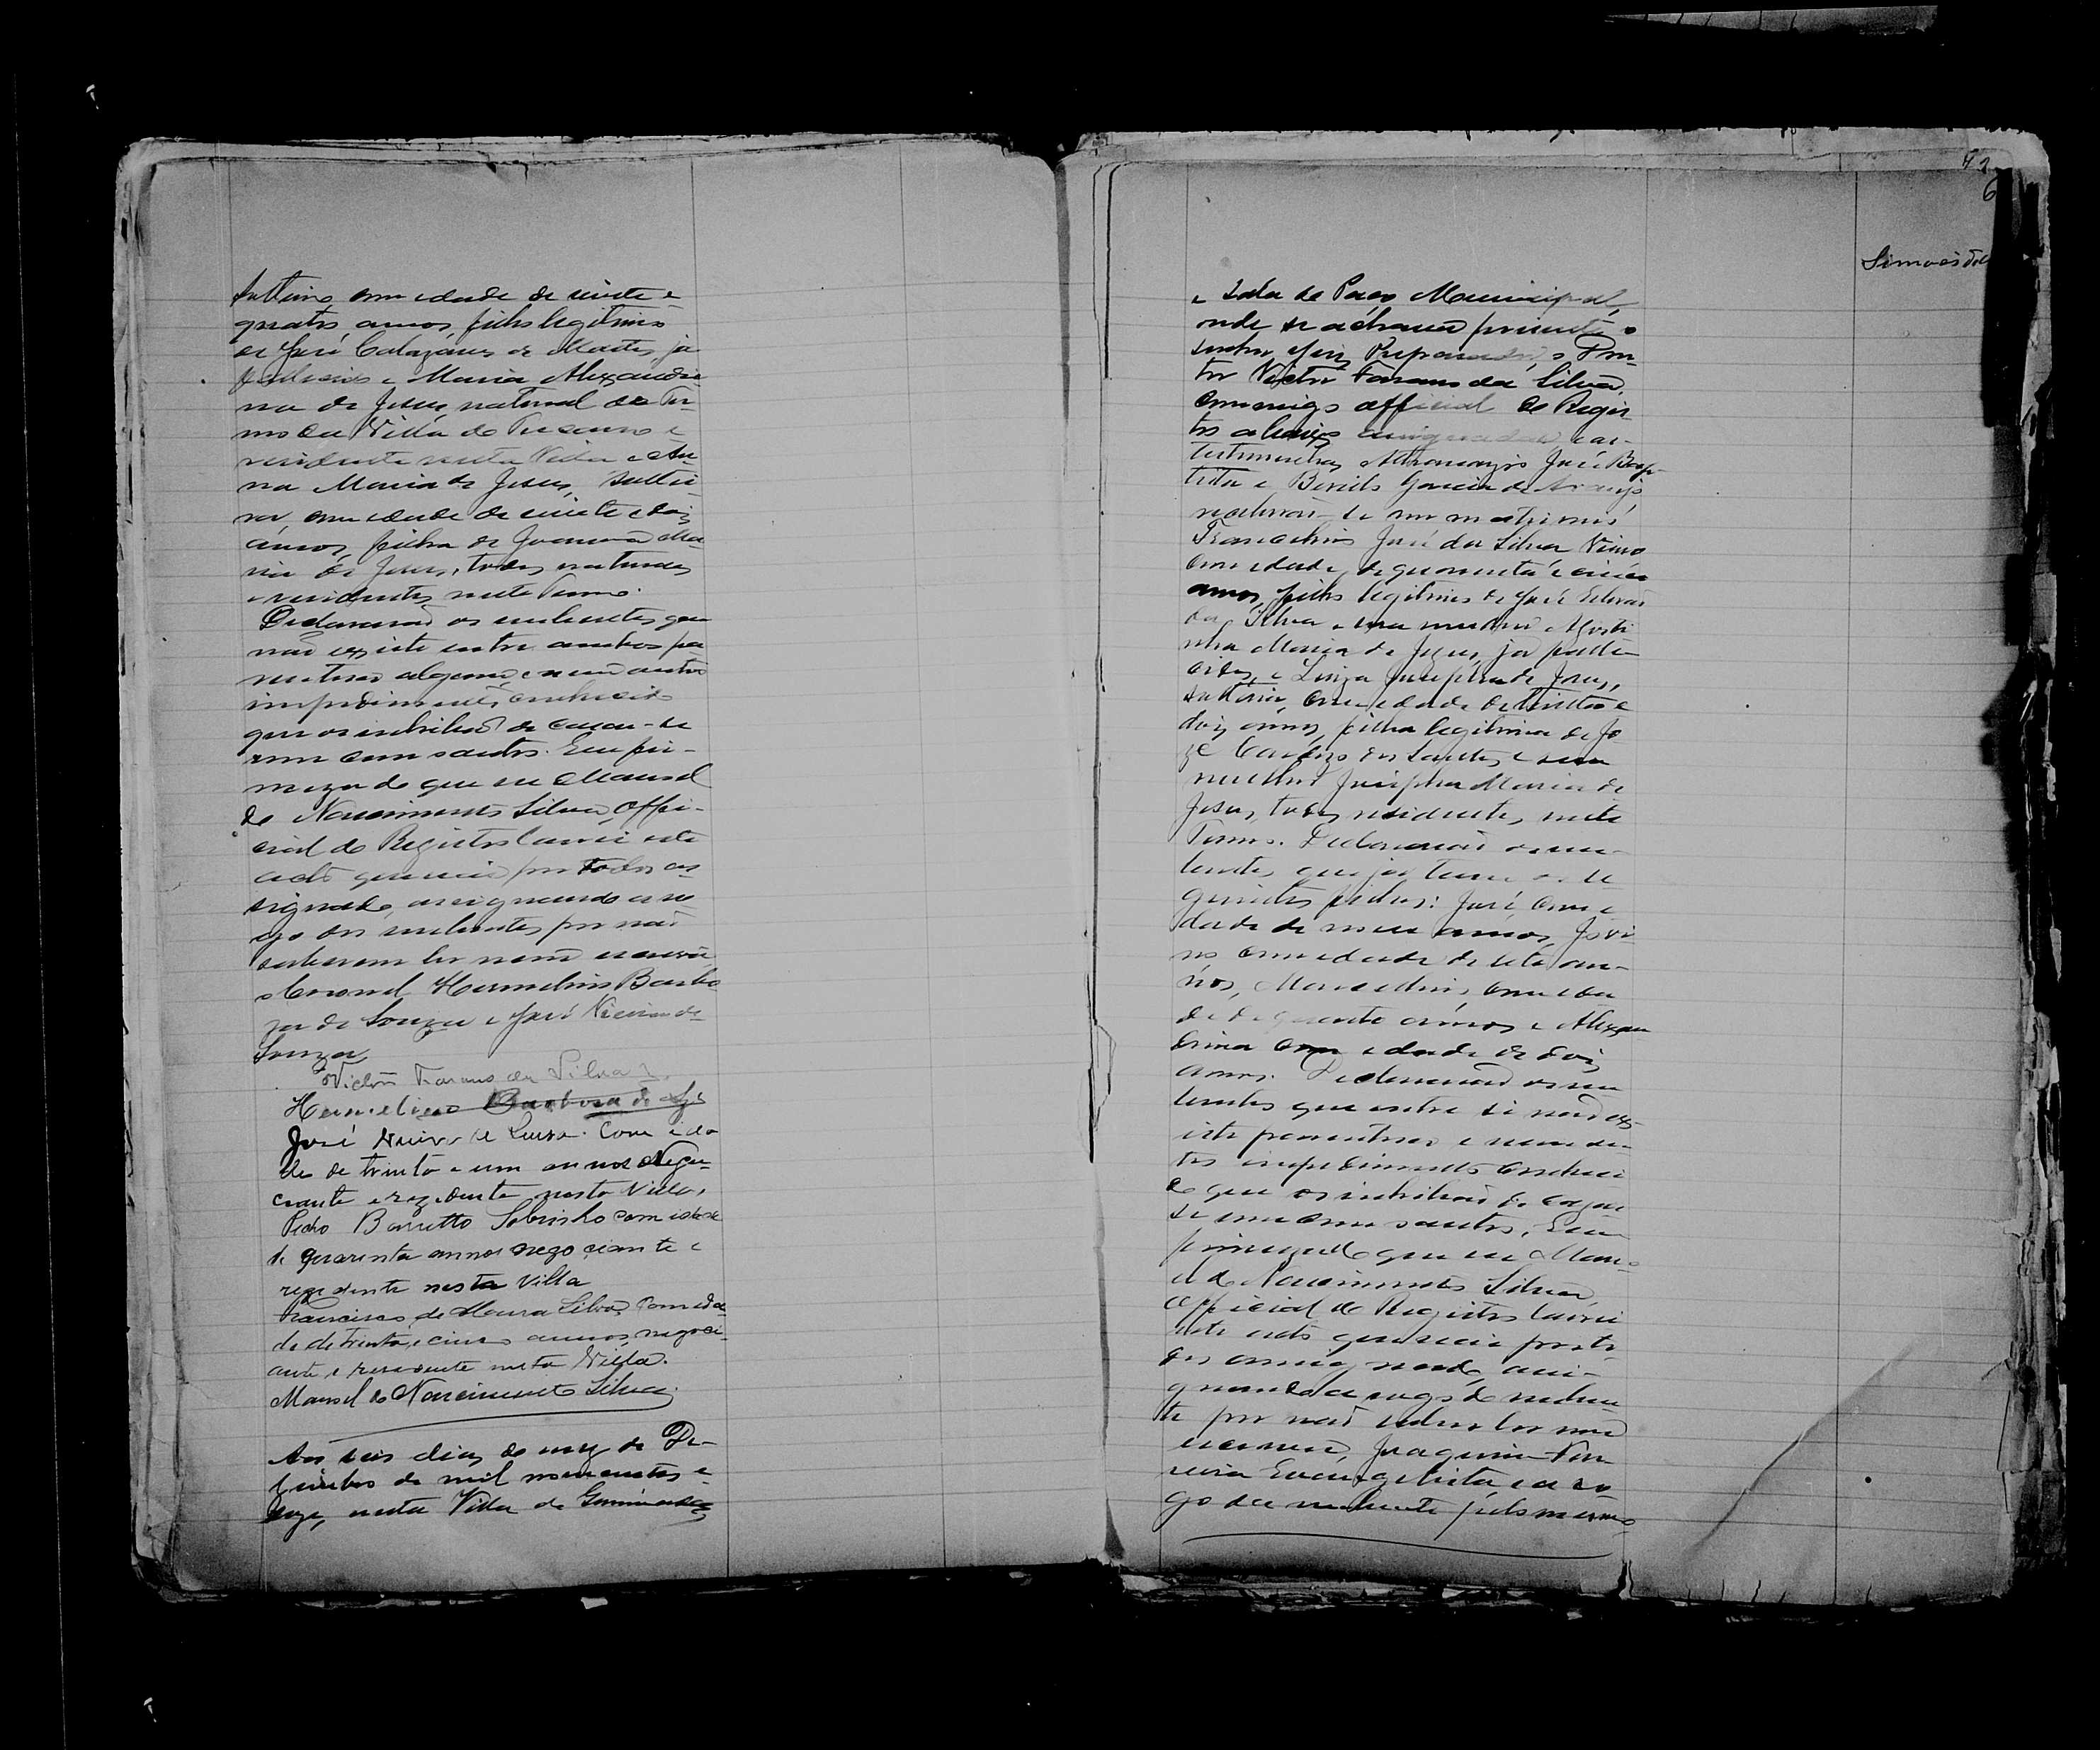 solteiro, com edade de vinte e
quatro annos, filho legitimo
de José Calazans de Mattos, já
fallecido e Maria Alexandri-
na de Jesus, natural do Ter-
mo da Villa do Tucano e
residente nesta Villa e An-
na Maria de Jesus, soltei-
ra, com edade de vinte e dois
annos, filha de Joanna Ma-
ria de Jesus, todos naturaes
e residentes neste Termo.
Declararão os nubentes que
não existe entre ambos pa-
rentesco algum, e nem outro
impedimento conhecido
que os inhibão de casar-se
um com outro. Em fir-
meza do que eu Manoel
do Nascimento Silva, Offi-
cial do Registro lavrei este
acto que vai por todos as-
signado, assignando a ro-
go dos nubentes por não
saberem ler nem escrever
o Coronel Hermelino Barbo
za de Souza e José Vieira de
Souza
Victor Soares da Silva
Hermelino Barbosa de Sz
José Vieira de Souza. Com ida
de de trinta e um annos Nego-
ciante e rezidente nesta Villa.
Pedro Barretto Sobrinho com idade
de quarenta annos negociante e
rezidente nesta Villa
Francisco de Moura Silva, Com ida
de de trinta e cinco annos, negoci-
ante e residente nesta Villa.
Manoel do Nascimento Silva.
Aos seis dias do mez de De-
zembro de mil novecentos e
doze, nesta Villa de
6
Simões
e sala do Paço Municipal,
onde se achavam presente o
senhor Juiz Preparador, o Dou-
tor Victor Soares da Silva,
commigo official do Regis-
tro abaixo assignado, e as
testimunhas José Bap-
tista e Garcia de Araujo
receberão-se em matrimonio
José da Silva Viuvo
com edade de quarenta e cinco
annos, filho legitimo de José Estevão
da Silva e sua mulher Agosti
nha Maria de Jesus, já falle-
cidos, e Josepha de Jesus,
solteira, com edade de trinta e
dois annos, filha legitima de Jo
zé Cardozo dos Santos e sua
mulher Josepha Maria de
Jesus, todos residentes neste
Termo. Declararão os nu-
bentes que já tem os se
guintes filhos: José, com e
dade de nove annos, Jovi
no com edade de sete an-
nos, Marcellino, com eda
de de quatro annos e Alexan
drina com edade de dois
annos. Declararão os nu
bentes que entre si não ex
iste parentesco e nem ou-
tro impedimento conheci
do que os inhibão de casar
se um com outro. Em
firmeza do que eu Mano-
el do Nascimento Silva,
official do Registro lavrei
este acto que vai por to
dos assignado, assi-
gnando a rogo do nuben
te por não saber ler nem
escrever, Joaquim Fer
reira Evangelista e a ro
go da nubente pelo mesmo